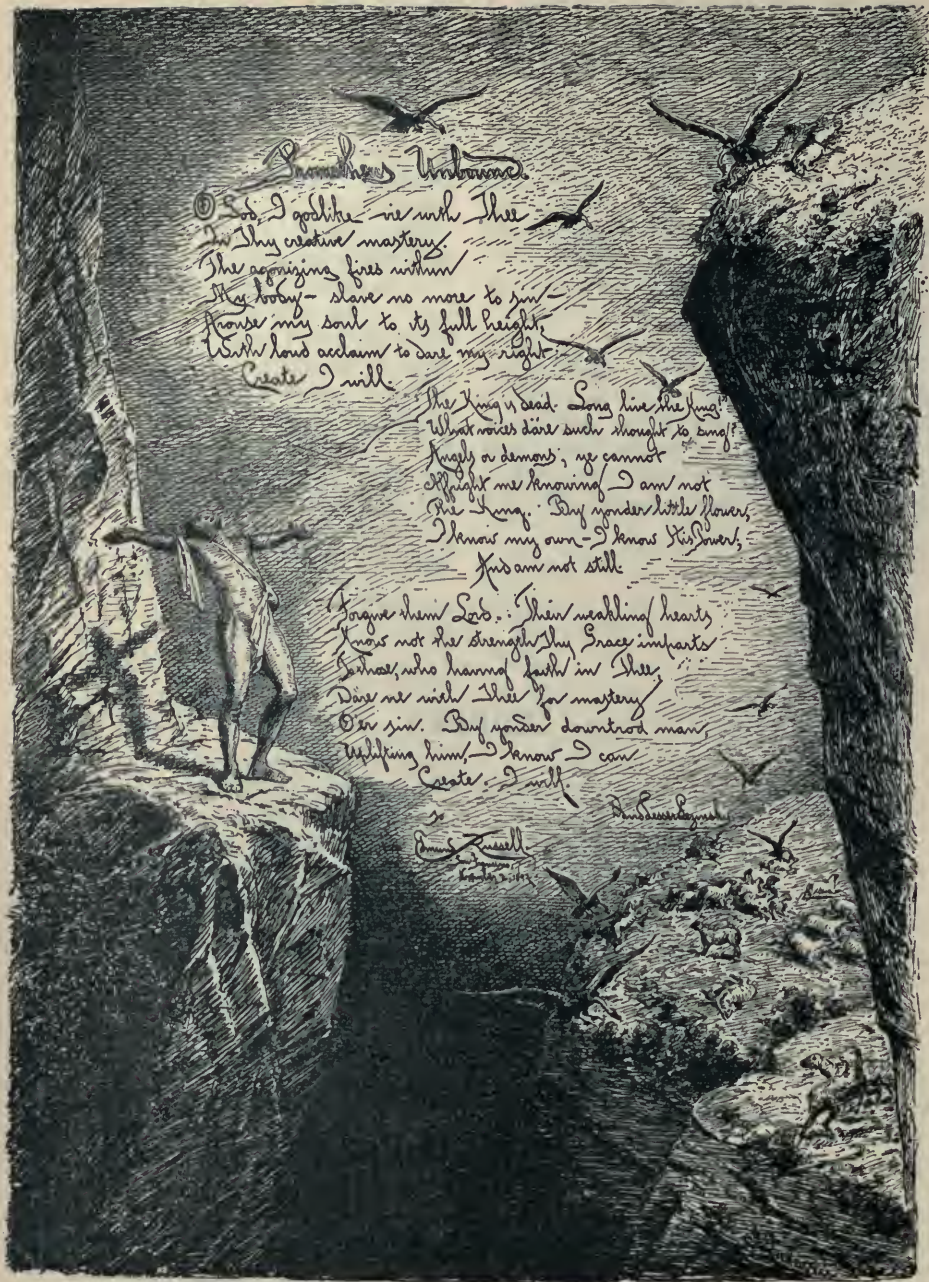 Prometheus Unbound.
O God, I godlike vie with Thee
In Thy creative mastery.
The agonizing fires within
My body – slave no more to sin –
Arouse my soul to its full height,
With loud acclaim to dare my right
Create I will.
The King is dead. Long live the King!
What voices dare such thought to sing?
Angels or demons, ye cannot
Affright me knowing I am not
The King. By yonder little flower,
I know my own – I know His Power,
And am not still.
Forgive them Lord. Their weakling hearts
Know not the strength Thy Grace imparts
To those, who having faith in Thee,
Dare vie with Thee for mastery
O'er sin. By yonder downtrod man,
Uplifting him, I know I can
Create. I will
David Lesser Lezinsky
To
Edmund Russell